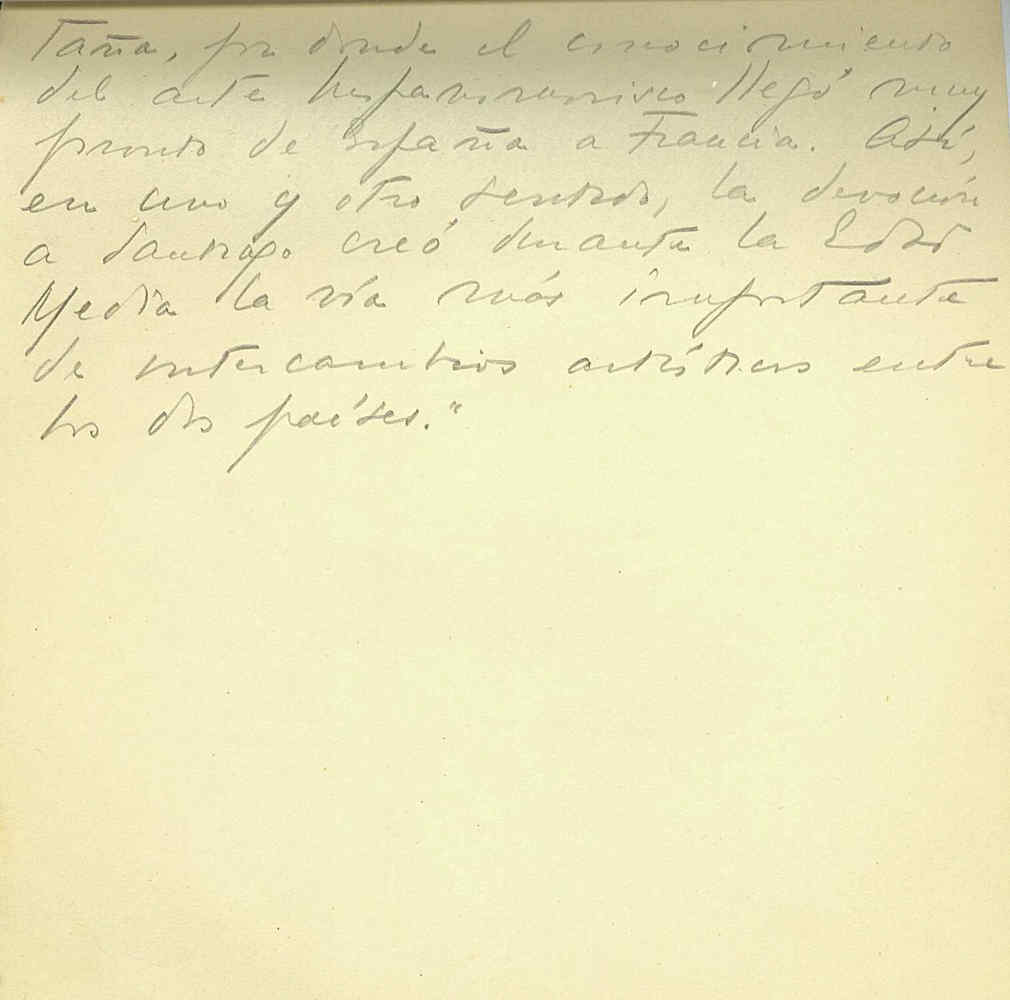 taña, por donde el conocimiento
del arte hispanomorisco llegó muy
pronto de España a Francia. Así,
en uno y otro sentido, la devoción
a Santiago creó durante la Edad
Media la vía más importante
de intercambios artísticos entre
los dos países."